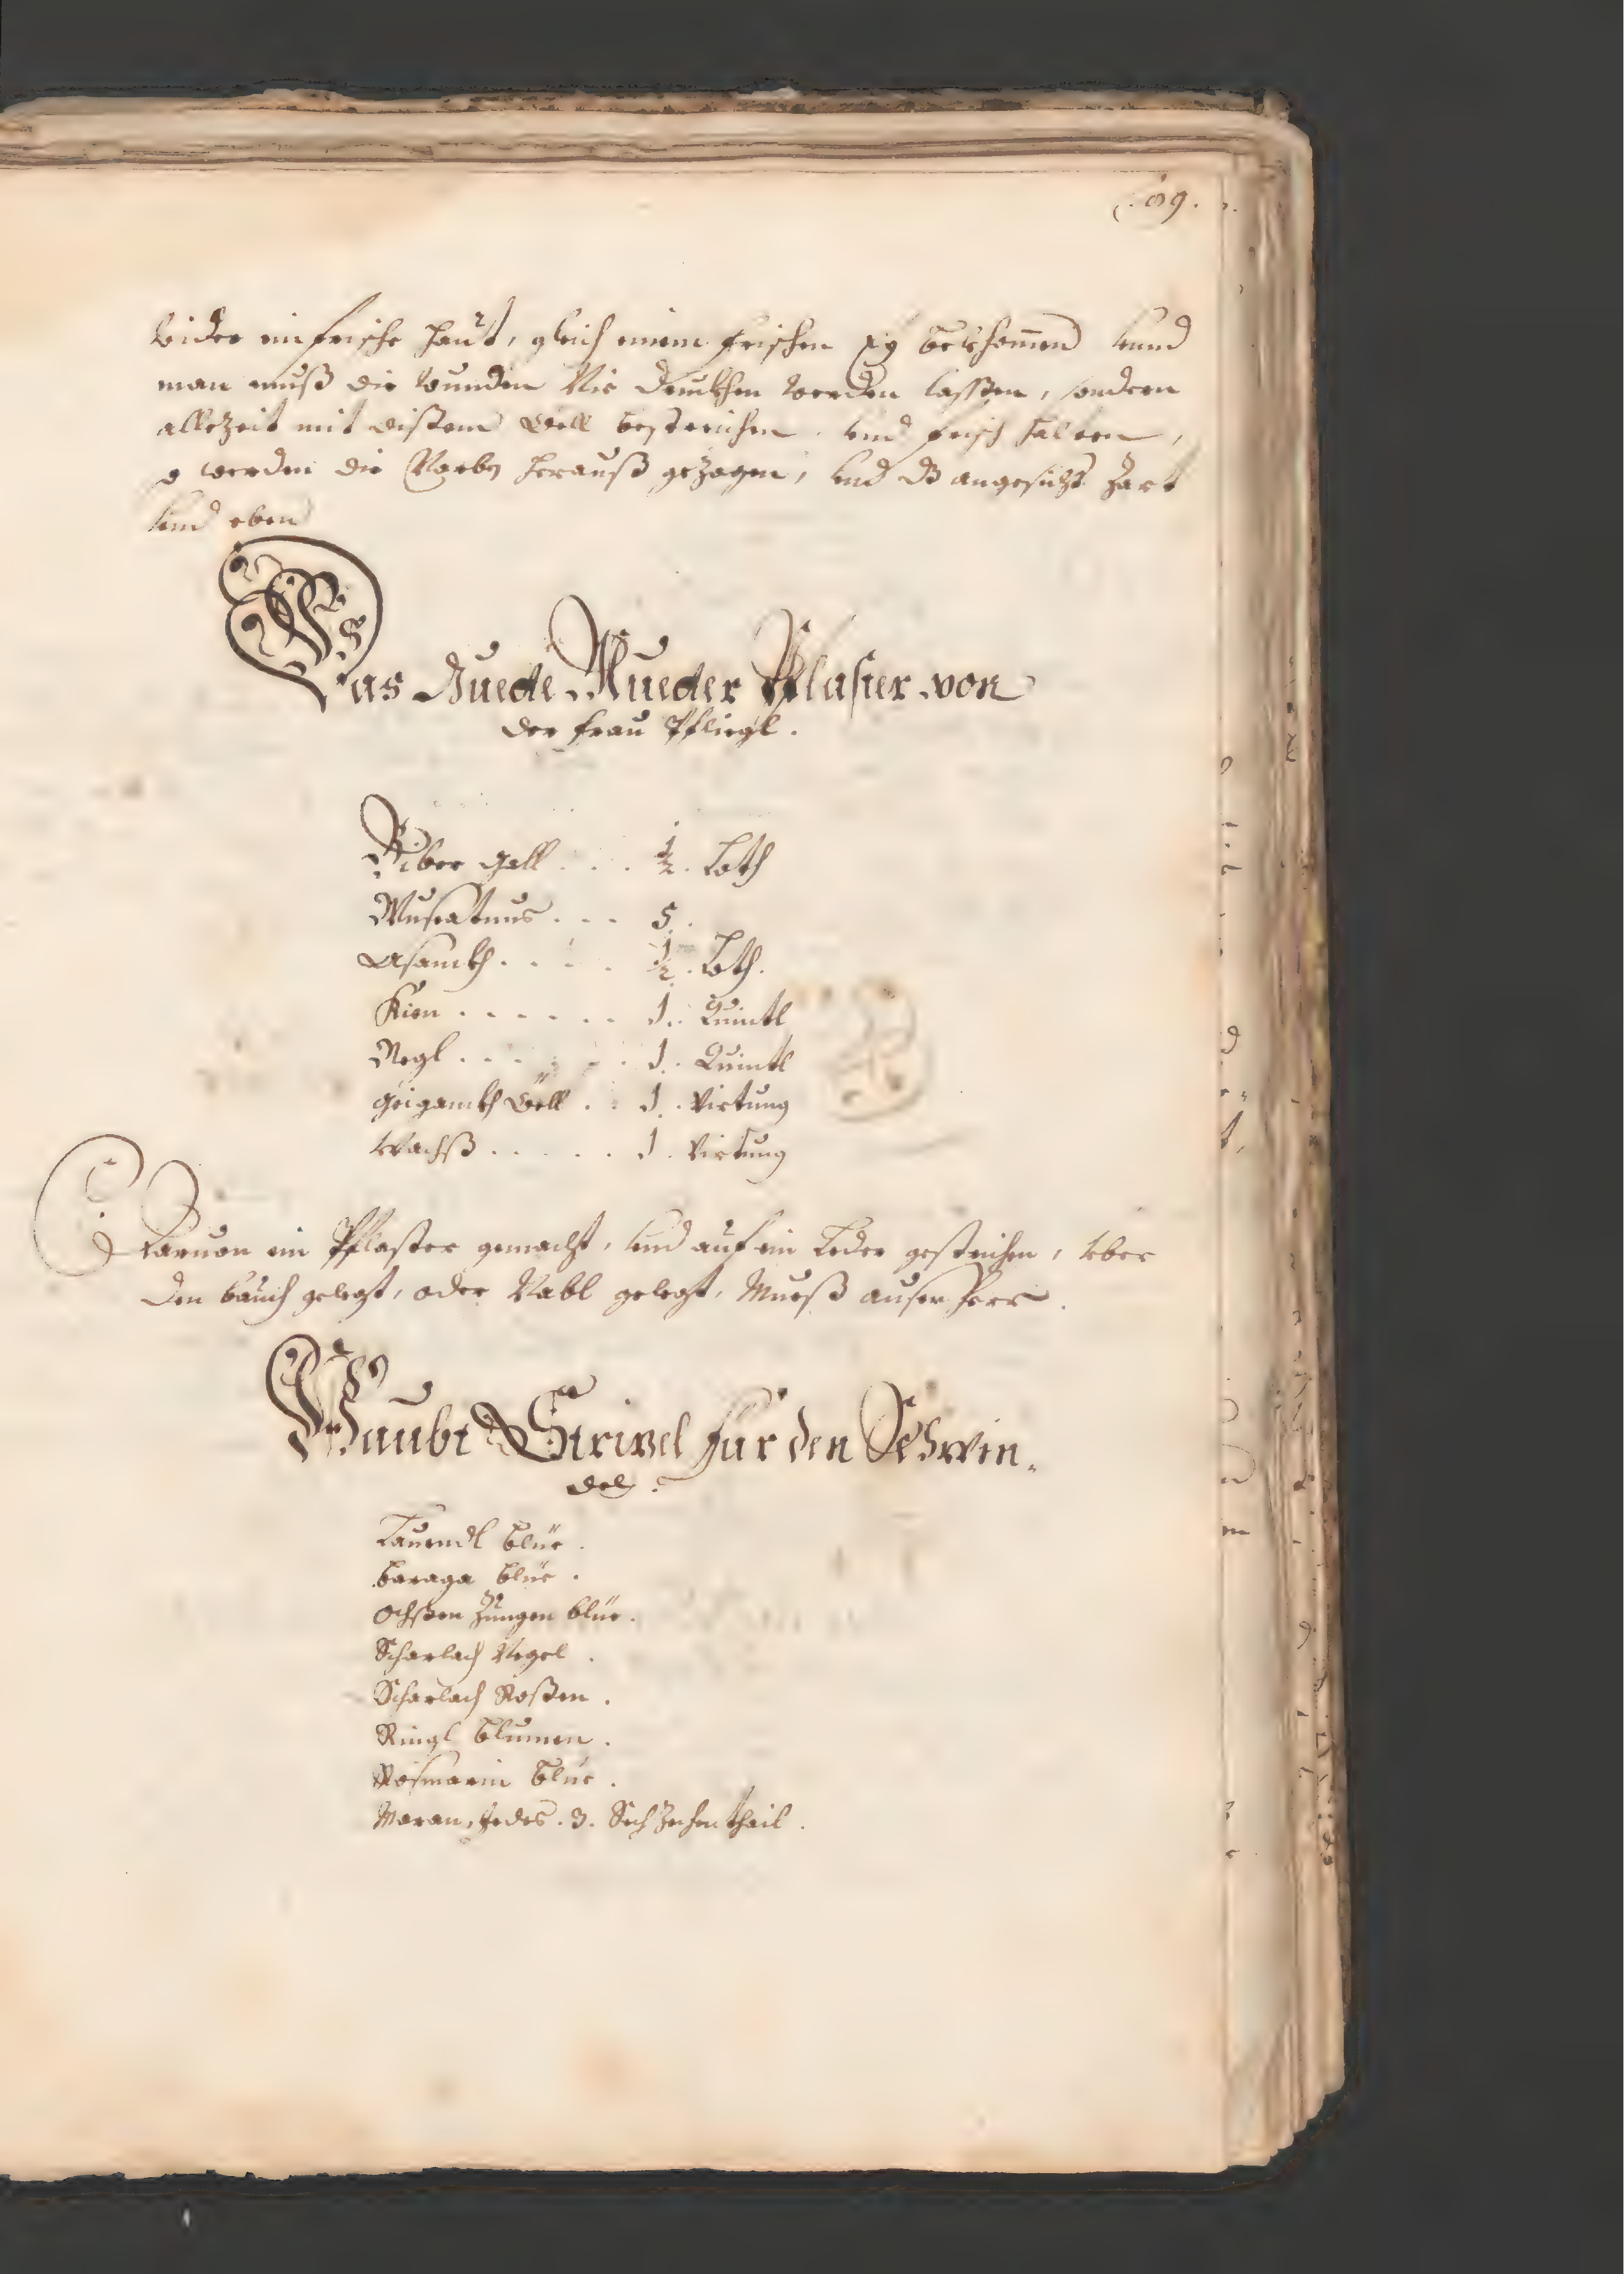 89.
wider ein frische haut, gleich einem frischen bekhomen vnnd
man muß die wunden Nie druckhen werden lassen, sondern
allezeit mit dißem Öell bestreichen. vnd frisch halten,
so werden die Narben herauß gezogen, vnd dz angesicht zart
vnd eben
Das Guede Mueder Pflaster von
der Frau Pfliegl.
Biber gall . . . ½. Loth
Muscatnus . . . 5.
Asanth . . . . ½. Loth.
Kien . . . . . . 1. Quintl
Negl . . . . . . 1. Quintl
Öell . . 1. Virtung
Wachß . . . . . 1. Virtung
Daruon ein Pflaster gemacht, vnd auf ein Leder gestrichen, vber
den bauch gelegt, oder Nabl gelegt, Mueß
Haubt Strizel für den Schwin-
del.
Lauendl blüe.
baraga blüe.
Ochßen Zungen blüe.
Scharlach Negel.
Scharlach Roßen.
Ringl blumen.
Rosmarin blüe.
Maran, Jedes. 3. Sechzehenthail.